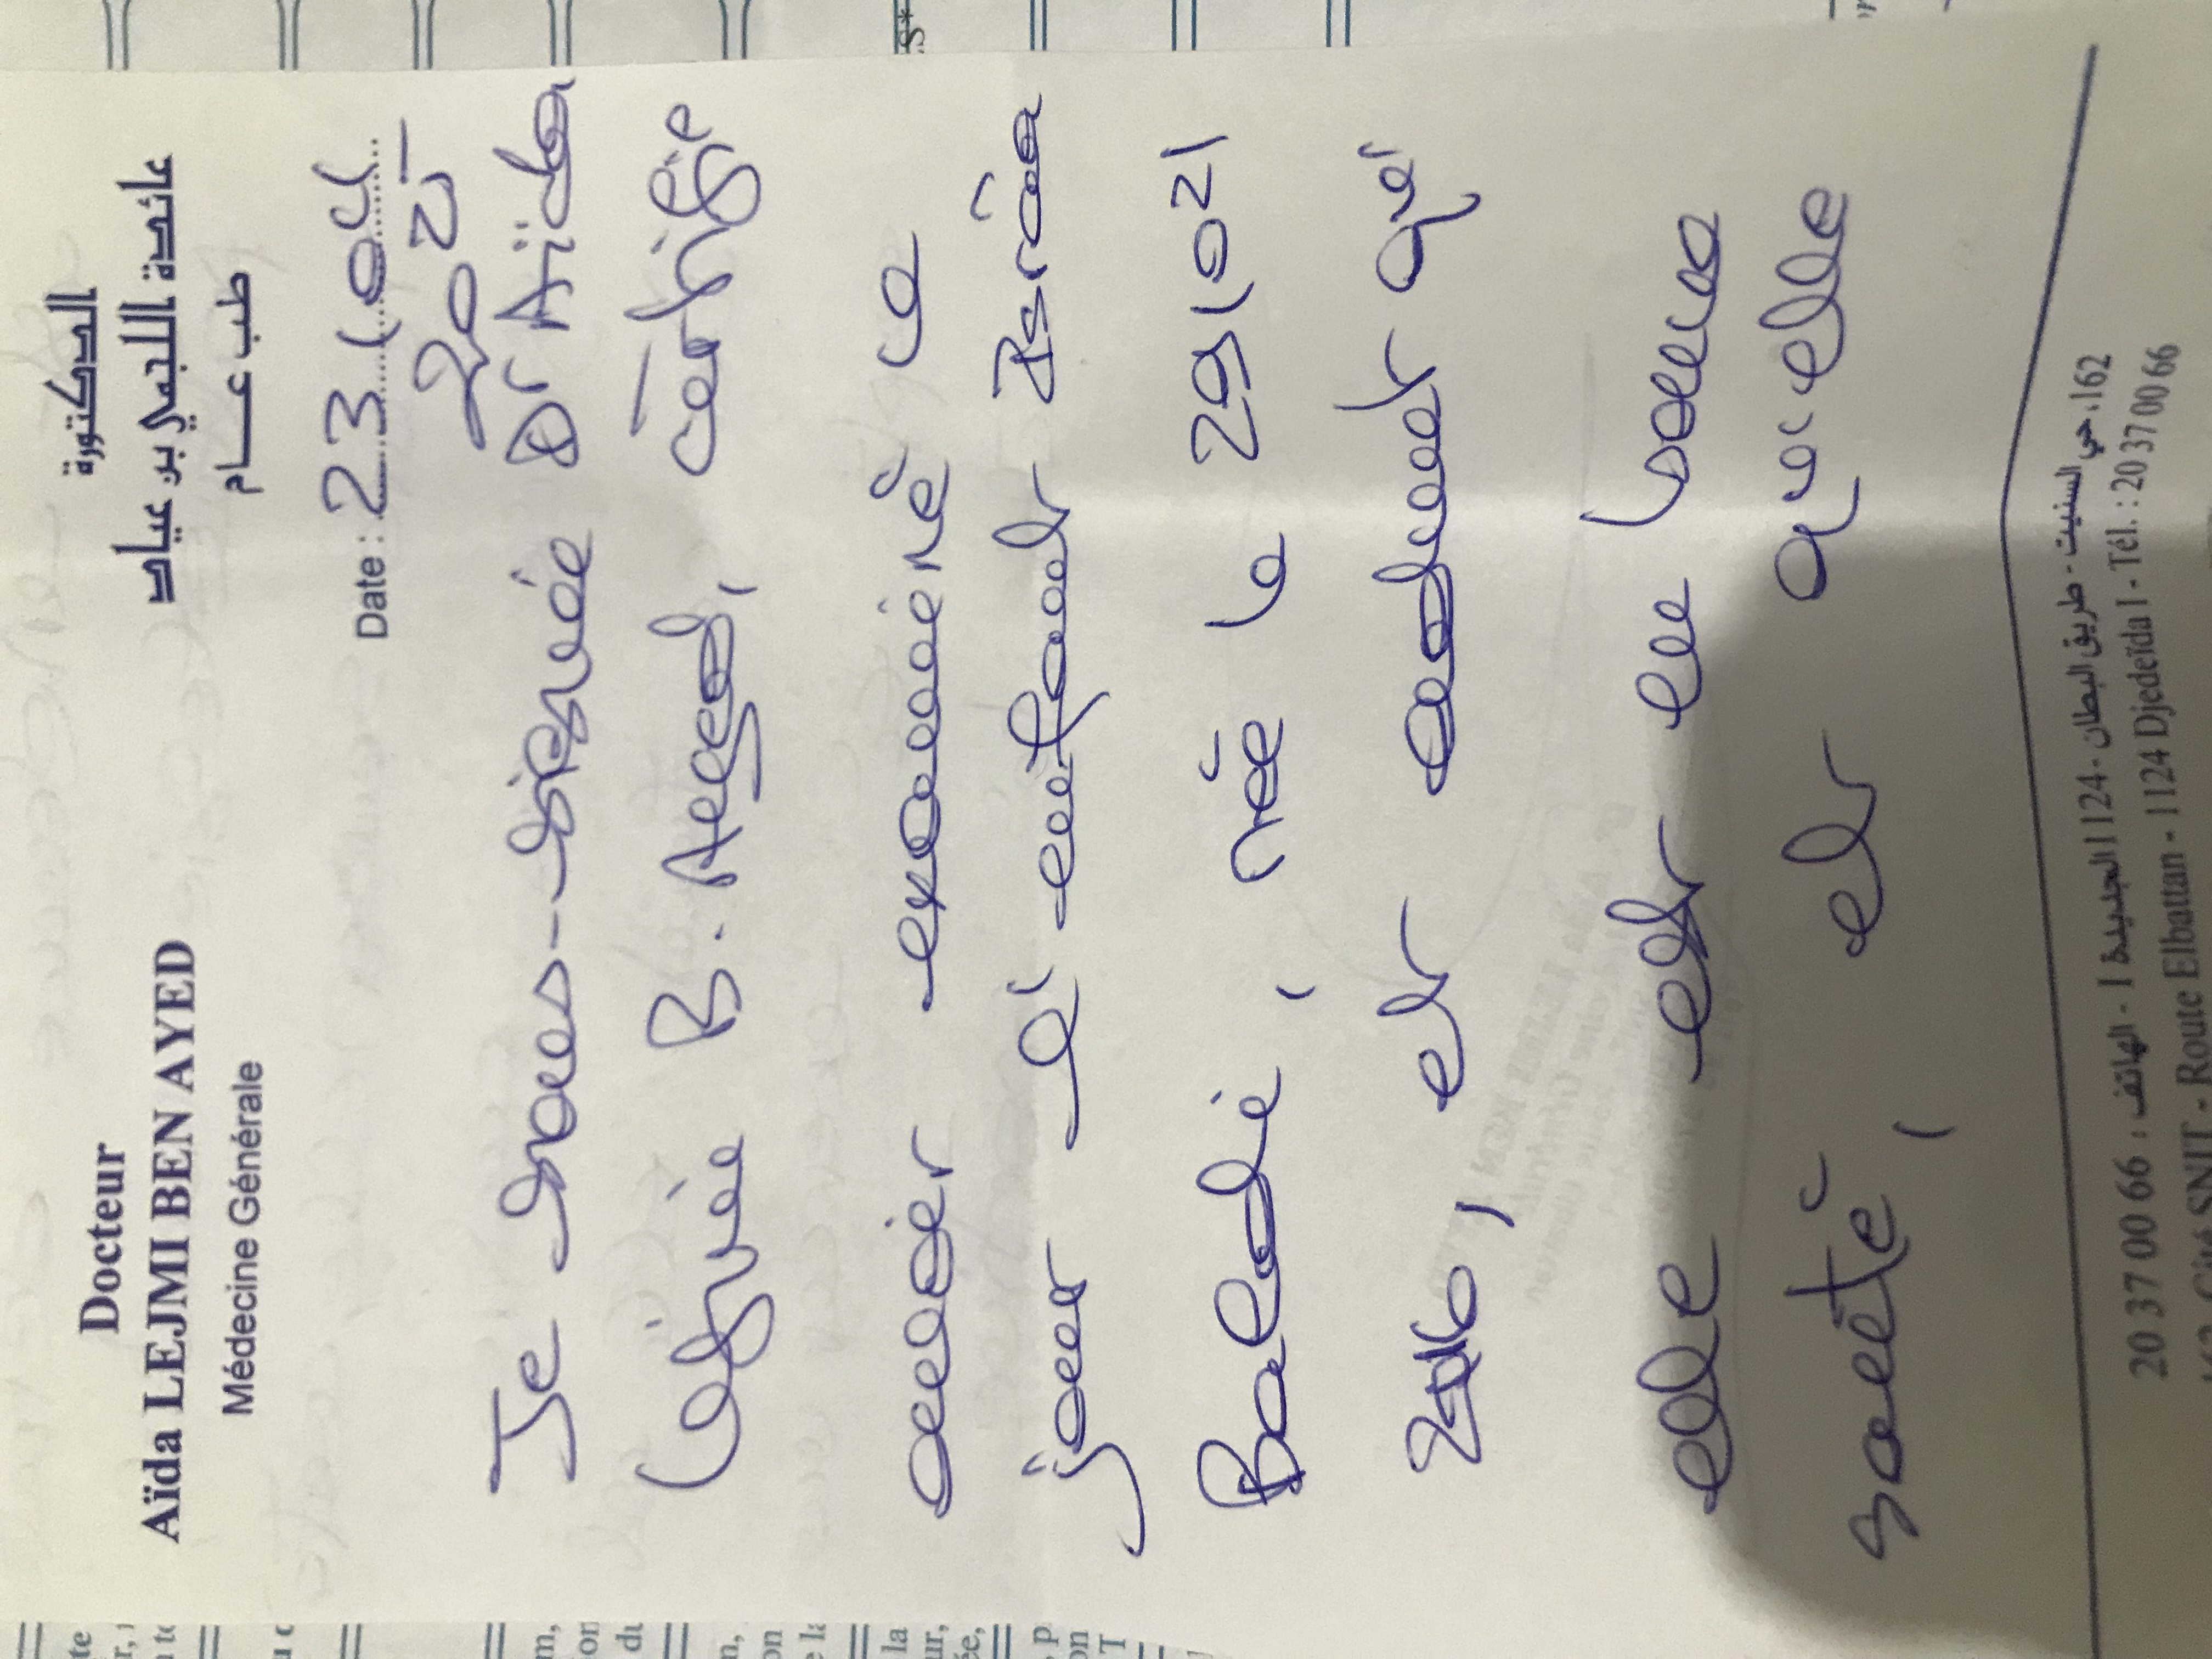 Docteur
Aïda LEJMI BEN AYED
Médecine Générale
الدكتورة
عائدة اللجمي بن عياد
طب عـــام
Date : 23/04
2025
Je sous-signée Dr Aida
Lejmi B. Ayed, certifie
avoir examiné ce
jour l'enfant Israa
Baldi, née le 29/02/
2016, et atteste que
elle est en bonne
santé, et qu'elle
20 37 00 66 : الهاتف - 1 الجديدة 1124 - طريق البطان - حي السنيت ،162
162 Cité SNIT - Route Elbattan - 1124 Djedeïda 1 - Tél. : 20 37 00 66